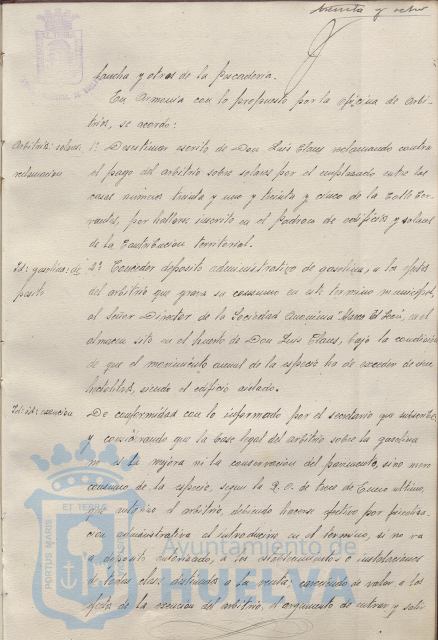 treinta y ocho
lancha y otros de la pescadería.
En armonía con lo propuesto por la oficina de Arbi-
trios, se acordó:
Arbitrios: solares: reclamación
1º Desestimar escrito de Don Luis Claus reclamando contra
el pago del arbitrio sobre solares por el emplazado entre las
casas números treinta y uno y treinta y cinco de la Calle Cer-
vantes, por hallarse inscrito en el Padrón de edificios y solares
de la Contribución territorial.
Id: gasolina: de-
pósito
2º Conceder depósito administrativo de gasolina, a los efectos
del arbitrio que grava su consumo en este término municipal,
al Señor Director de la Sociedad Anónima en el
almacén sito en el huerto de Don Luis Claus, bajo la condición
de que el movimiento anual de la especie ha de exceder de
hectolitros, siendo el edificio aislado.
Id: id: exención
De conformidad con lo informado por el secretario que subscribe,
y considerando que la base legal del arbitrio sobre la gasolina
no es la mejora ni la conservación del pavimento, sino mero
consumo de la especie, según la R.O. de tres de Enero último,
que autorizó el arbitrio, debiendo hacerse efectivo por
administrativa al introducirse en el término, si no va
a depósito autorizado, a los establecimientos o instalaciones
de todas clases destinados a la venta; careciendo de valor a los
efectos de la exención del arbitrio, el argumento de entrar y salir
ET TERRAE
PORTUS MARIS
Ayuntamiento de
HUELVA